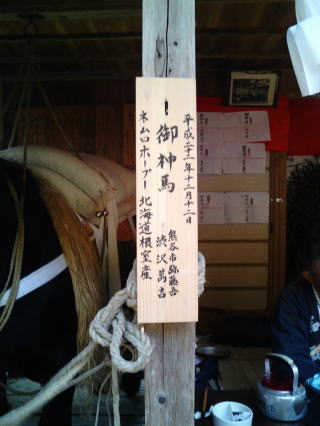 平成二十二年十二月十二日
御神馬
熊谷市弥藤吾
渋沢萬吉
ネムロホープー 北海道根室産